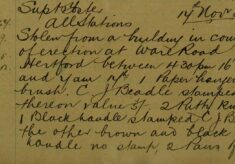 Supt Stoles 14 Nov
All Stations
Stolen from a building in cou
of erection at Ware Road
Hertford between 4.30pm 16th
and 7am 17th 1 Paper hanger
brush. C J Beadle stamped
thereon value 5/. 2 Putty Kn
1 Black handle stamped C J B
the other brown and black
handle no stamp, 2 pairs